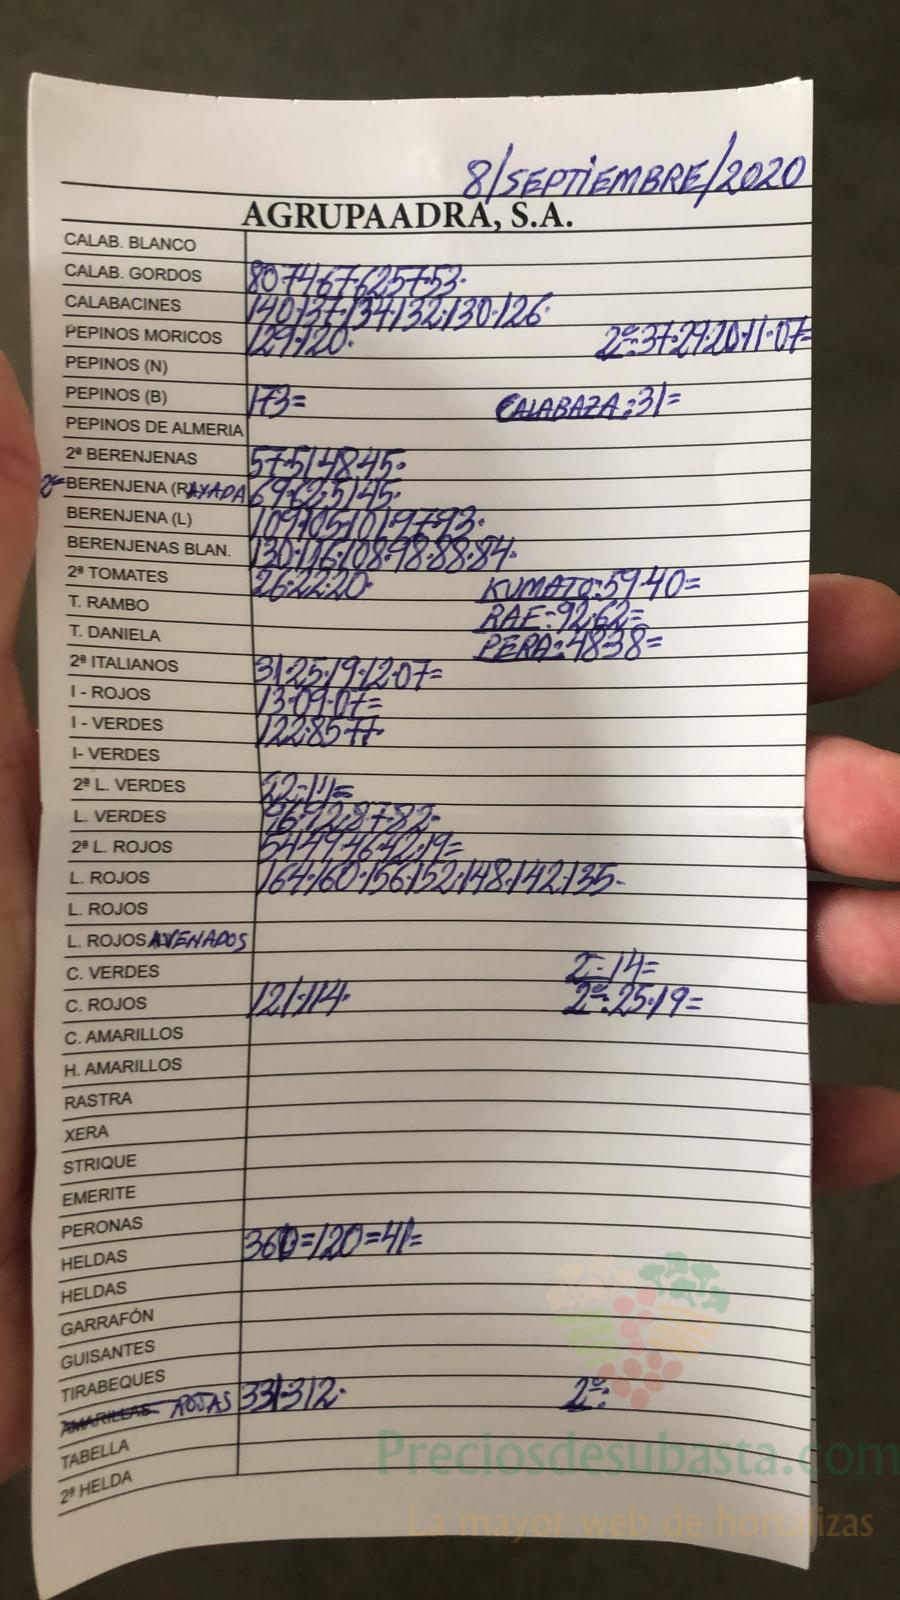 8/SEPTIEMBRE/2020
AGRUPAADRA, S.A.
CALAB. BLANCO
CALAB. GORDOS 80·74·67·62·57·53·
CALABACINES 140·137·134·132·130·126·
PEPINOS MORICOS 129·120· 2ª:37·29·20·11·07=
PEPINOS (N)
PEPINOS (B) 173= CALABAZA:31=
PEPINOS DE ALMERIA
2ª BERENJENAS 57·51·48·45·
2ª BERENJENA (RAYADA 69·62·51·45·
BERENJENA (L) 109·105·101·97·93·
BERENJENAS BLAN. 130·116·108·98·88·84·
2ª TOMATES 26·22·20· KUMATO:59·40=
T. RAMBO RAF:92·62=
T. DANIELA PERA:48·38=
2ª ITALIANOS 31·25·19·12·07=
I - ROJOS 13·09·07=
I - VERDES 122·85·77·
I- VERDES
2ª L. VERDES 22·11=
L. VERDES 96·92·87·82·
2ª L. ROJOS 54·49·46·42·19=
L. ROJOS 164·160·156·152·148·142·135·
L. ROJOS
L. ROJOS AVENADOS
C. VERDES 2ª:14=
C. ROJOS 121·114· 2ª:25·19=
C. AMARILLOS
H. AMARILLOS
RASTRA
XERA
STRIQUE
EMERITE
PERONAS
HELDAS 360=120=41=
HELDAS
GARRAFÓN
GUISANTES
TIRABEQUES
AMARILLAS ROJAS 331·312· 2ª:
TABELLA
2ª HELDA
Preciosdesubasta.com
La mayor web de hortalizas